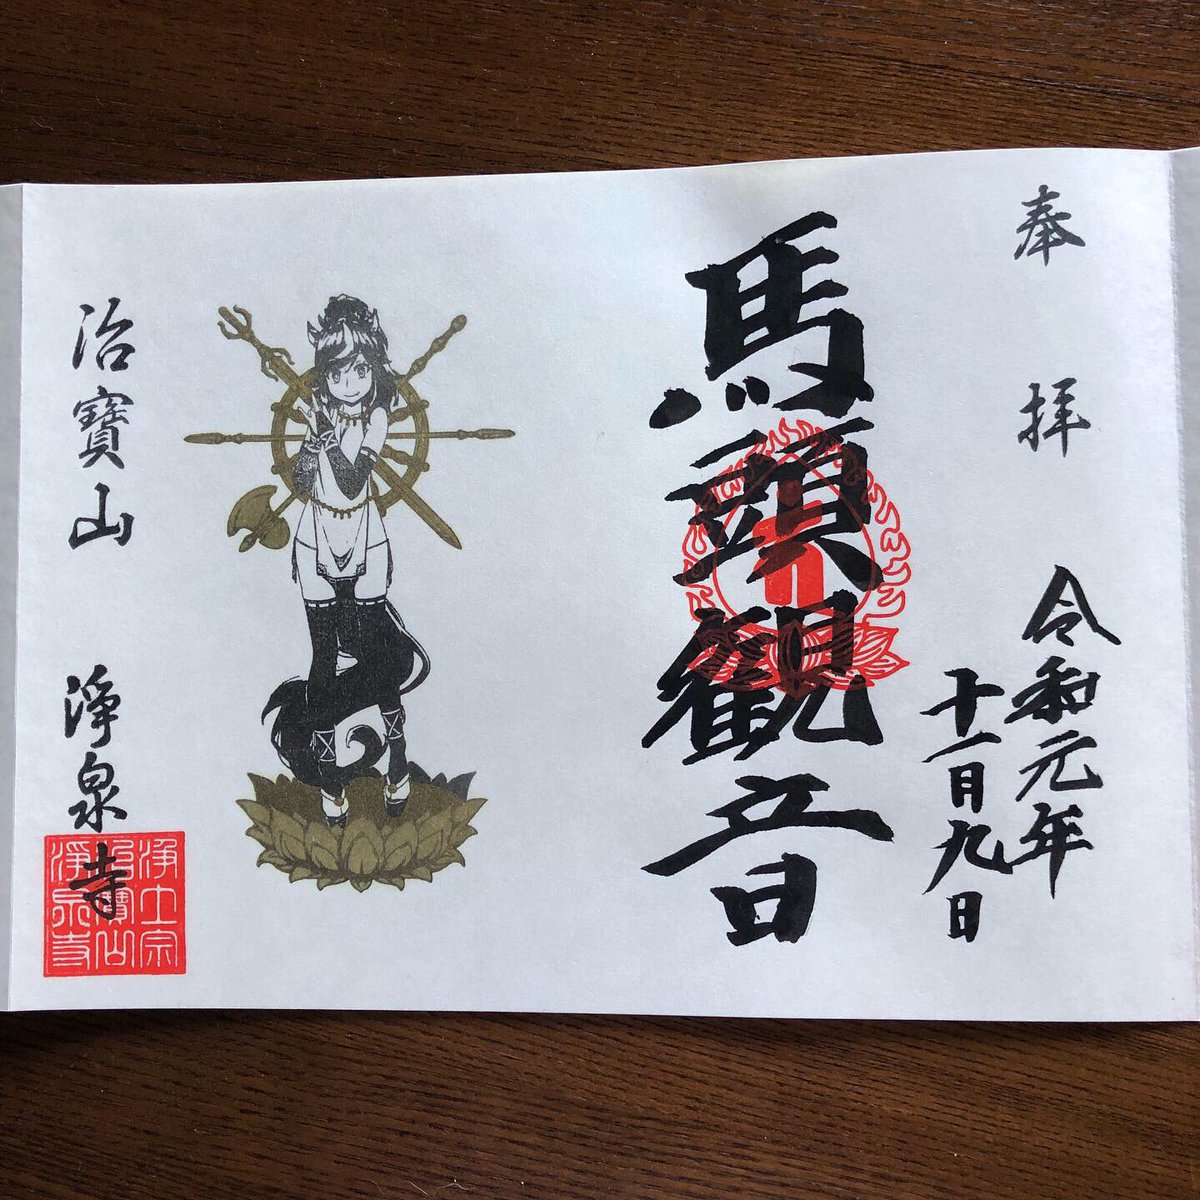 奉拝
令和元年
十一月九日
馬頭觀音
治寶山
淨泉寺
浄土宗
治寶山
淨泉寺